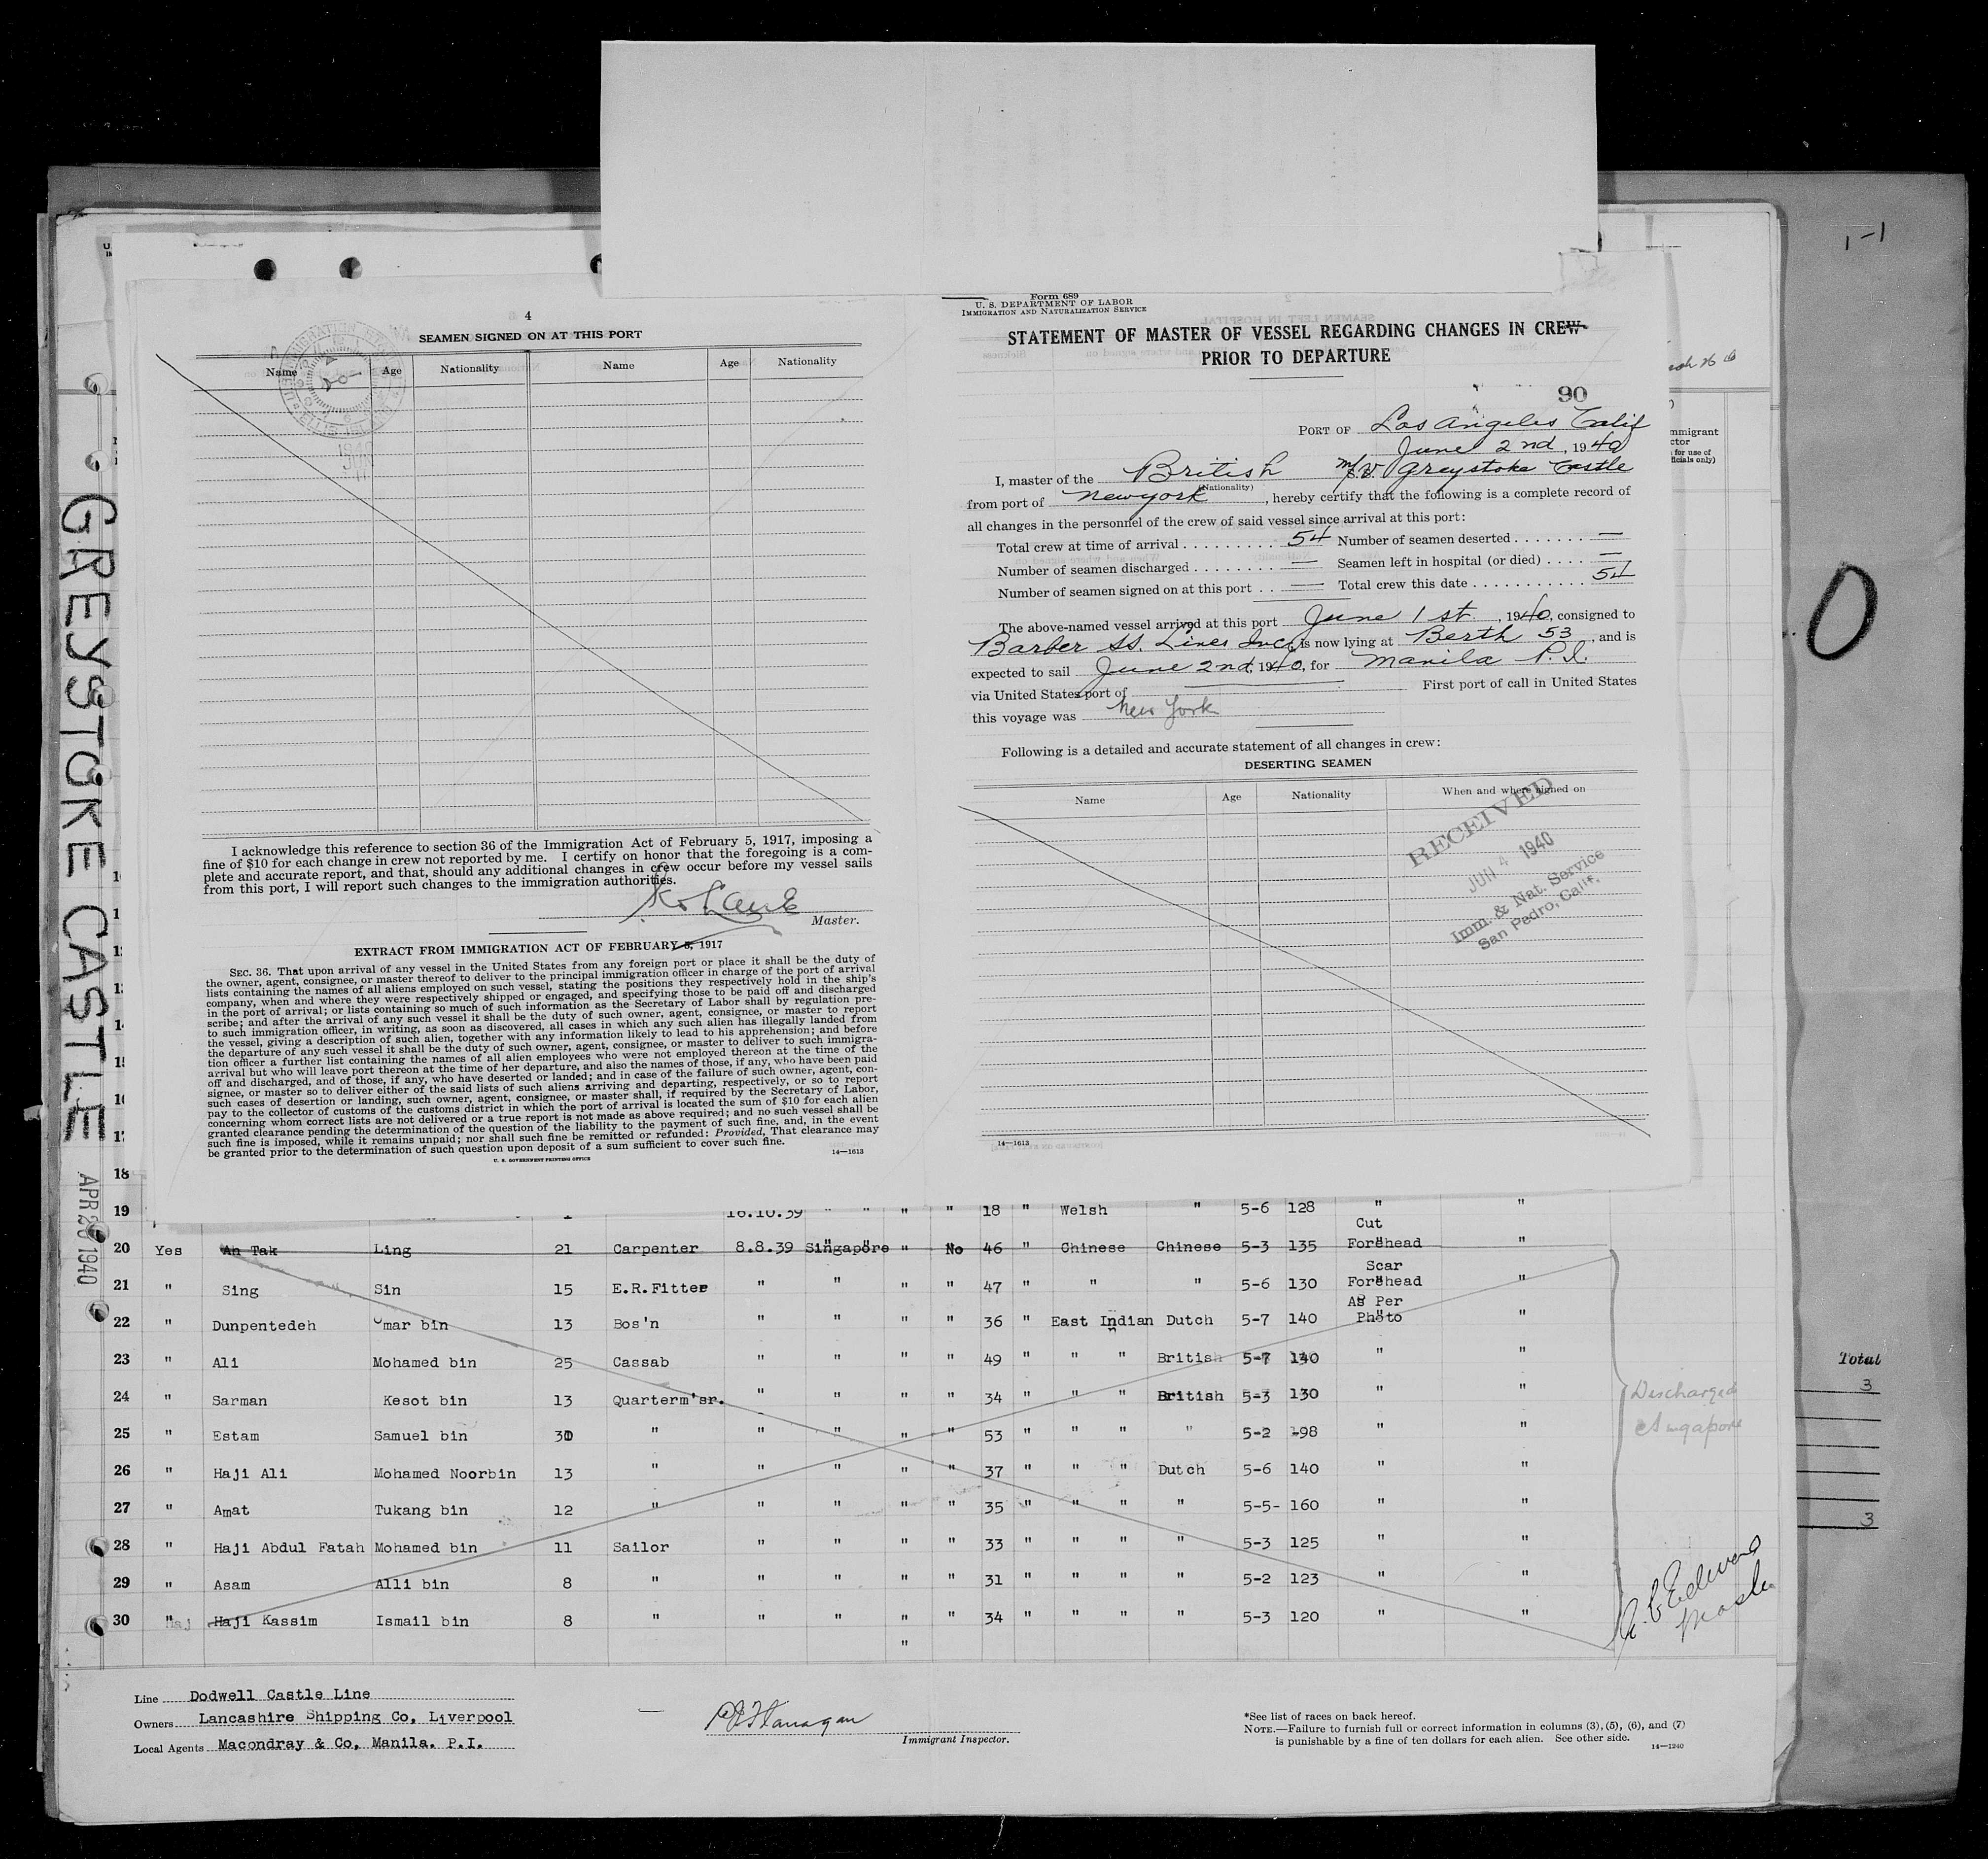 4
SEAMEN SIGNED ON AT THIS PORT
Name Age Nationality Name Age Nationality
I acknowledge this reference to section 36 of the Immigration Act of February 5, 1917, imposing a
fine of $10 for each change in crew not reported by me. I certify on honor that the foregoing is a com-
plete and accurate report, and that, should any additional changes in crew occur before my vessel sails
from this port, I will report such changes to the immigration authorities.
Master.
EXTRACT FROM IMMIGRATION ACT OF FEBRUARY 5, 1917
SEC. 36. That upon arrival of any vessel in the United States from any foreign port or place it shall be the duty of
the owner, agent, consignee, or master thereof to deliver to the principal immigration officer in charge of the port of arrival
lists containing the names of all aliens employed on such vessel, stating the positions they respectively hold in the ship's
company, when and where they were respectively shipped or engaged, and specifying those to be paid off and discharged
in the port of arrival; or lists containing so much of such information as the Secretary of Labor shall by regulation pre-
scribe; and after the arrival of any such vessel it shall be the duty of such owner, agent, consignee, or master to report
to such immigration officer, in writing, as soon as discovered, all cases in which any such alien has illegally landed from
the vessel, giving a description of such alien, together with any information likely to lead to his apprehension; and before
the departure of any such vessel it shall be the duty of such owner, agent, consignee, or master to deliver to such immigra-
tion officer a further list containing the names of all alien employees who were not employed thereon at the time of the
arrival but who will leave port thereon at the time of her departure, and also the names of those, if any, who have been paid
off and discharged, and of those, if any, who have deserted or landed; and in case of the failure of such owner, agent, con-
signee, or master so to deliver either of the said lists of such aliens arriving and departing, respectively, or so to report
such cases of desertion or landing, such owner, agent, consignee, or master shall, if required by the Secretary of Labor,
pay to the collector of customs of the customs district in which the port of arrival is located the sum of $10 for each alien
concerning whom correct lists are not delivered or a true report is not made as above required; and no such vessel shall be
granted clearance pending the determination of the question of the liability to the payment of such fine, and, in the event
such fine is imposed, while it remains unpaid; nor shall such fine be remitted or refunded: Provided, That clearance may
be granted prior to the determination of such question upon deposit of a sum sufficient to cover such fine.
U. S. GOVERNMENT PRINTING OFFICE 14—1613
Form 689
U. S. DEPARTMENT OF LABOR
IMMIGRATION AND NATURALIZATION SERVICE
STATEMENT OF MASTER OF VESSEL REGARDING CHANGES IN CREW
PRIOR TO DEPARTURE
90
PORT OF Los Angeles Calif
June 2nd, 1940
I, master of the British M/V Greystoke Castle
(Nationality)
from port of New york, hereby certify that the following is a complete record of
all changes in the personnel of the crew of said vessel since arrival at this port:
Total crew at time of arrival 54 Number of seamen deserted —
Number of seamen discharged — Seamen left in hospital (or died) —
Number of seamen signed on at this port — Total crew this date 54
The above-named vessel arrived at this port June 1st, 1940, consigned to
Barber SS. Lines Inc, is now lying at Berth 53, and is
expected to sail June 2nd, 1940, for Manila P.I.
via United States port of First port of call in United States
this voyage was New York
Following is a detailed and accurate statement of all changes in crew:
DESERTING SEAMEN
Name Age Nationality When and where signed on
RECEIVED
JUN 4 1940
Imm. & Nat. Service
San Pedro, Calif.
14—1613
GREYSTOKE CASTLE
APR 26 1940
1-1
0
Total
3
3
18
19 16.10.39 " " " " 18 " Welsh " 5-6 128 " "
20 Yes Ah Tak Ling 21 Carpenter 8.8.39 Singapore " No 46 " Chinese Chinese 5-3 135 Cut Forehead "
21 " Sing Sin 15 E.R.Fitter " " " " 47 " " " 5-6 130 Scar Forehead "
22 " Dunpentedeh Omar bin 13 Bos'n " " " " 36 " East Indian Dutch 5-7 140 As Per Photo "
23 " Ali Mohamed bin 25 Cassab " " " " 49 " " " British 5-7 140 " "
24 " Sarman Kesot bin 13 Quarterm'sr. " " " 34 " " " British 5-3 130 " "
25 " Estam Samuel bin 30 " " " " " 53 " " " " 5-2 -98 " "
26 " Haji Ali Mohamed Noorbin 13 " " " " " 37 " " " Dutch 5-6 140 " "
27 " Amat Tukang bin 12 " " " " " 35 " " " " 5-5- 160 " "
28 " Haji Abdul Fatah Mohamed bin 11 Sailor " " " " 33 " " " " 5-3 125 " "
29 " Asam Alli bin 8 " " " " " 31 " " " " 5-2 123 " "
30 " Haji Kassim Ismail bin 8 " " " " " 34 " " " " 5-3 120 " "
"
Discharged
Singapore
Master
Line Dodwell Castle Line
Owners Lancashire Shipping Co, Liverpool
Local Agents Macondray & Co, Manila. P.I.
Immigrant Inspector.
*See list of races on back hereof.
NOTE.—Failure to furnish full or correct information in columns (3), (5), (6), and (7)
is punishable by a fine of ten dollars for each alien. See other side.
14—1240